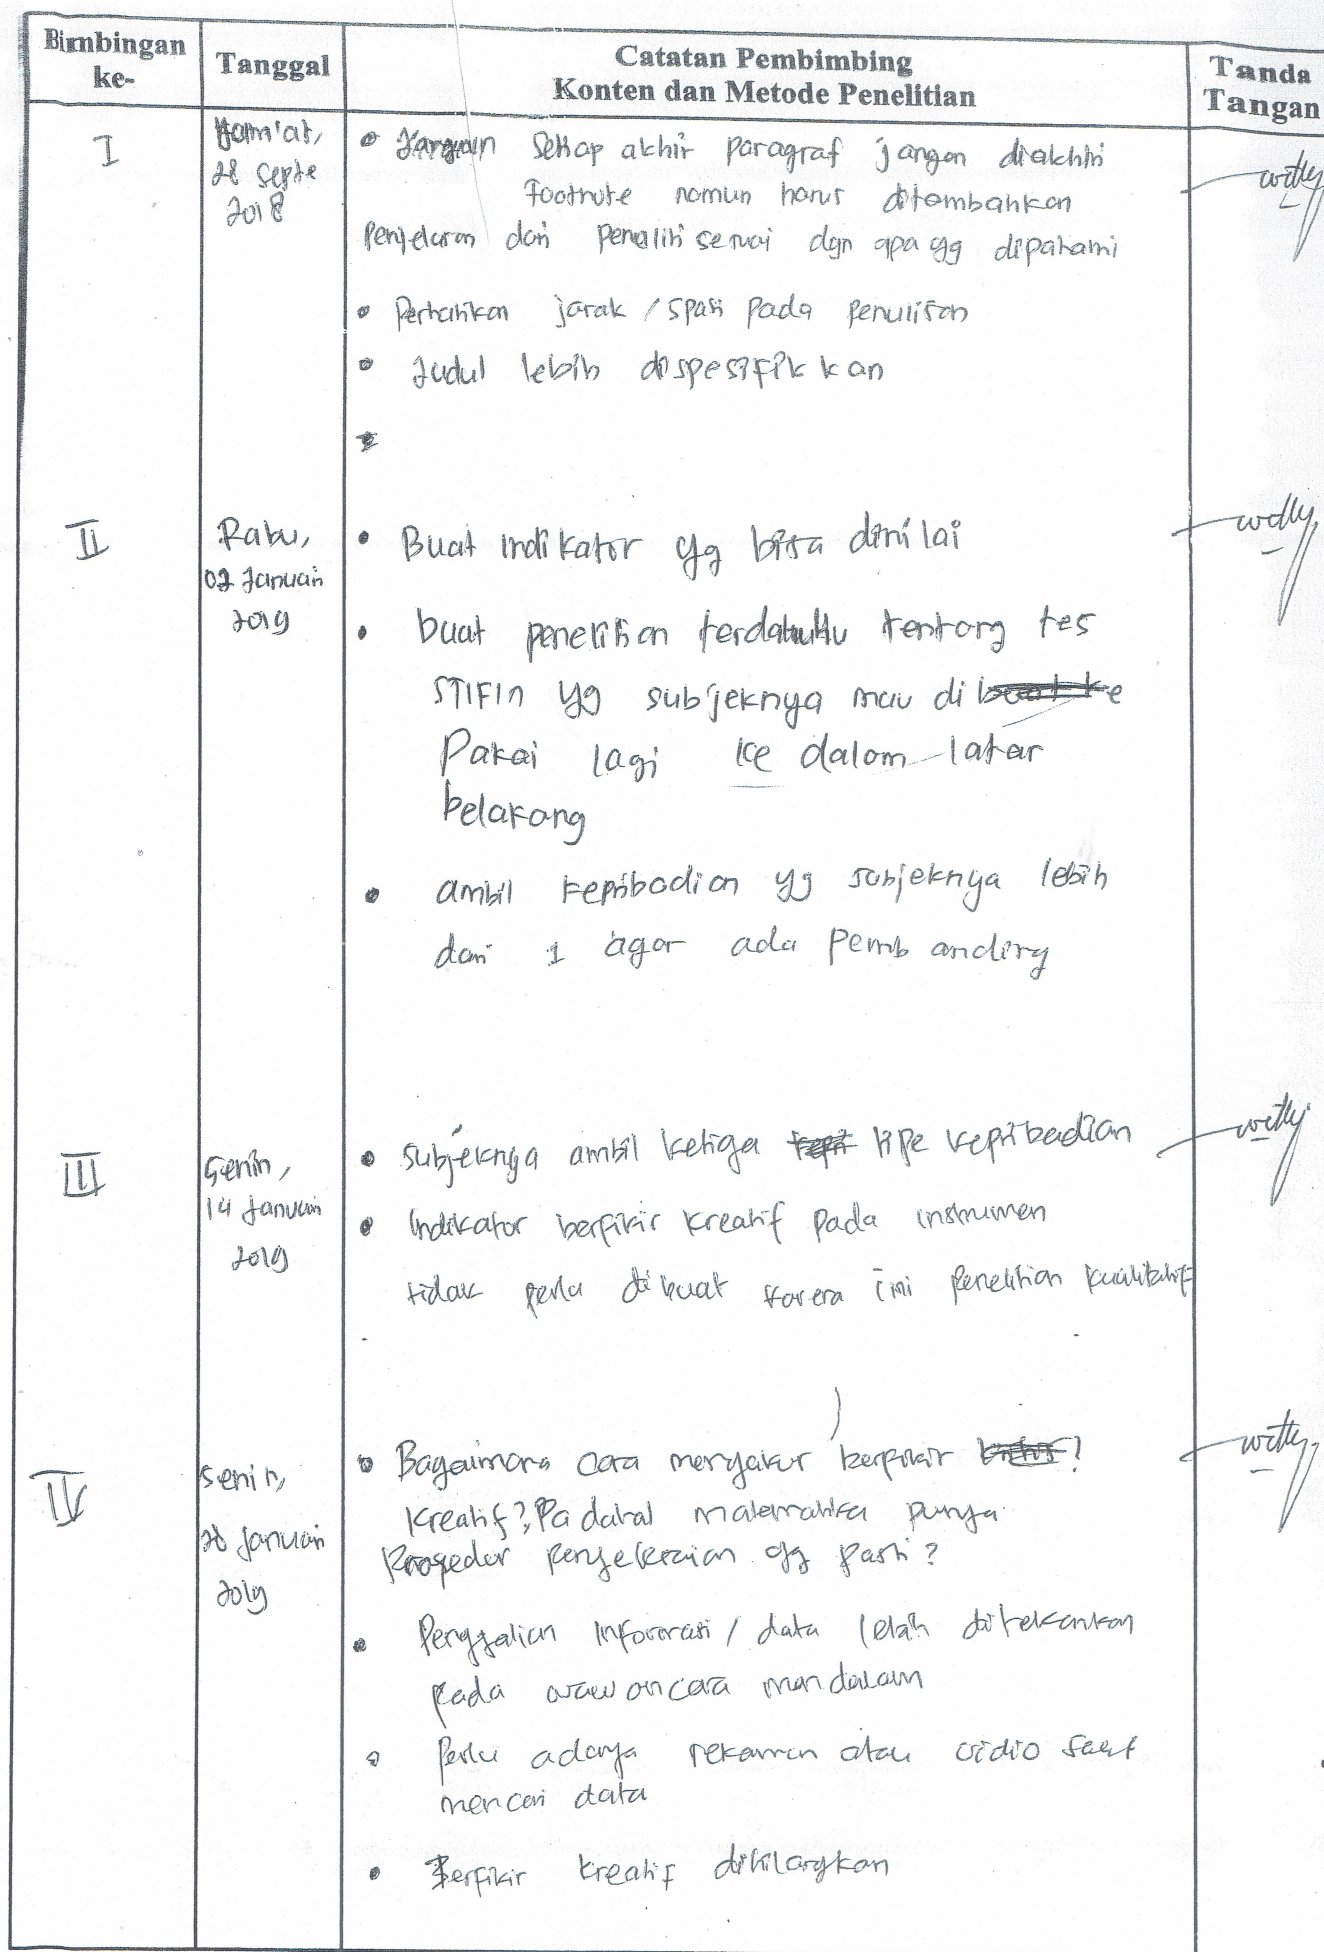 Bimbingan ke-
Tanggal
Catatan Pembimbing
Konten dan Metode Penelitian
Tanda Tangan
I
Jum'at,
28 Septe
2018
Setiap akhir paragraf jangan diakhiri
Footnote namun harus ditambahkan
Penjelasan dari peneliti sesuai dgn apa yg dipahami
Perhatikan jarak / spasi pada penulisan
Judul lebih dispesifikkan
II
Rabu,
02 Januari
2019
Buat indikator yg bisa dinilai
buat penelitian terdahulu tentang tes
STIFIn yg subjeknya mau di
Pakai lagi ke dalam latar
belakang
ambil kepribadian yg subjeknya lebih
dari 1 agar ada Pembanding
III
Senin,
14 Januari
2019
Subjeknya ambil ketiga tipe kepribadian
Indikator berfikir kreatif pada instrumen
tidak perlu dibuat karena ini penelitian kualitatif
IV
Senin,
28 Januari
2019
Bagaimana cara mengukur berpikir ?
Kreatif? Padahal matematika punya
Prosedur penyelesaian yg pasti?
Penggalian Informasi / data lebih ditekankan
pada wawancara mendalam
Perlu adanya rekaman atau vidio saat
mencari data
Berfikir kreatif dihilangkan